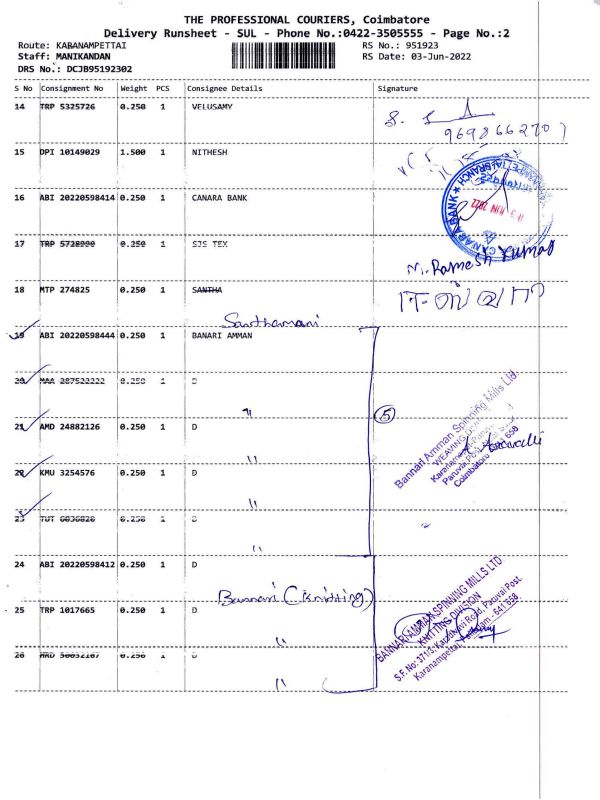 THE PROFESSIONAL COURIERS, Coimbatore
Delivery Runsheet - SUL - Phone No.:0422-3505555 - Page No.:2
Route: KABANAMPETTAI RS No.: 951923
Staff: MANIKANDAN RS Date: 03-Jun-2022
DRS No.: DCJB95192302
S No Consignment No Weight PCS Consignee Details Signature
14 TRP 5325726 0.250 1 VELUSAMY
9698662707
15 DPI 10149029 1.500 1 NITHESH
16 ABI 20220598414 0.250 1 CANARA BANK
CANARA BANK
17 TRP 0.250 1 SJS TEX
M. Ramesh Kumar
18 MTP 274825 1 SANTHA
Santhamani
19 ABI 20220598444 0.250 1 BANARI AMMAN
20 MAA 0.250 1 D
5
Bannari Amman Spinning Mills Ltd
WEAVING
Coimbatore
21 AMD 24882126 0.250 1 D
"
22 KMU 3254576 0.250 1 D
"
23 TUT 0.250 1 D
"
24 ABI 20220598412 0.250 1 D
"
Bannari (Knitting)
BANNARI AMMAN SPINNING MILLS LTD
KNITTING DIVISION
S.F. No: 371/3, Road, Paruvai Post
Karanampettai, - 641 658.
25 TRP 1017665 0.250 1 D
"
26 0.250 1 D
"